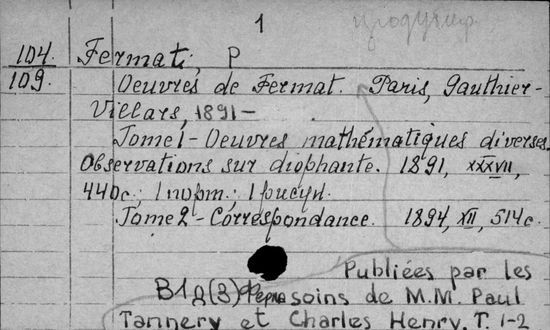 1
продубир
104 Fermat, P
109. Oeuvres de Fermat. Paris, Gauthier-
Villars, 1891-
Tome 1-Oeuvres mathématiques diverses.
Observations sur diophante. 1891, XXXVII,
440c.; 1 порт.; 1 рисун.
Tome 2-Correspondance. 1894, XII, 514c.
Publiées par les
B1g(3) Ферма soins de M.M. Paul
Tannery et Charles Henry, T. 1-2